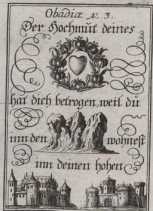 Obadiæ v. 3.
Der Hochmut deines
hat dich betrogen, weil du
inn den wohnest
inn deinen hohen